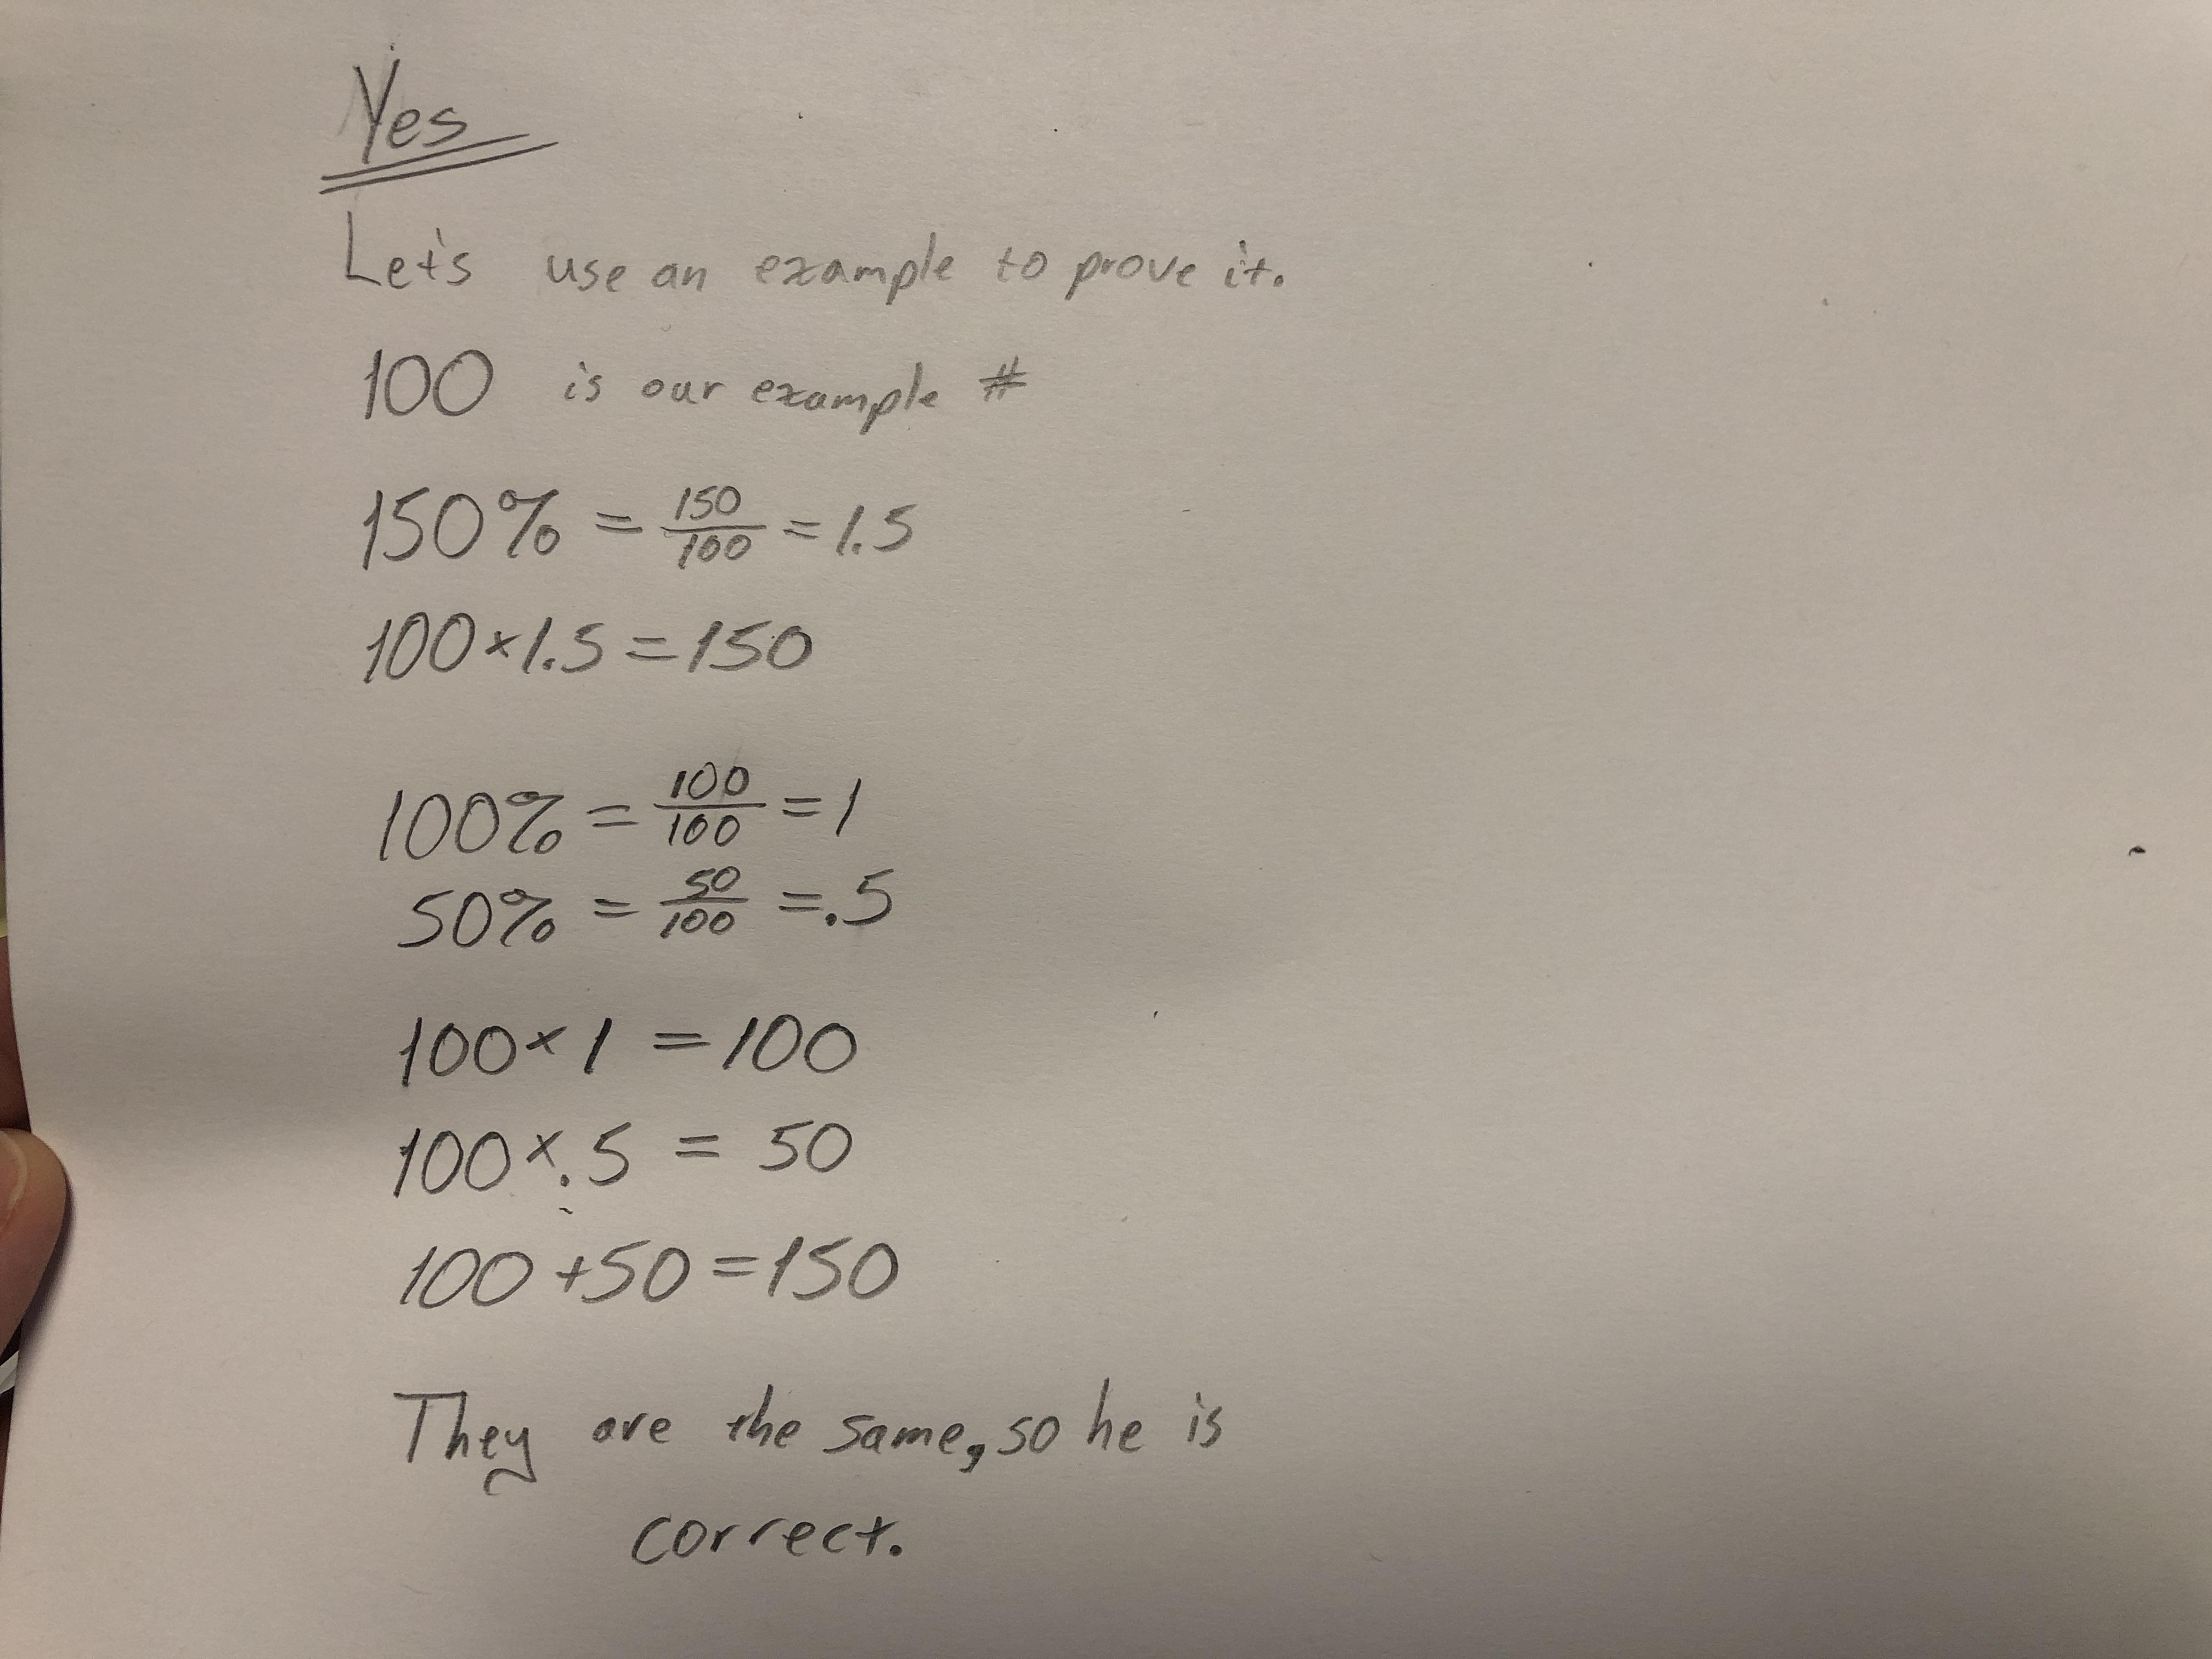 Yes
Let's use an example to prove it.
100 is our example #
150% = 150/100 = 1.5
100×1.5 = 150
100% = 100/100 = 1
50% = 50/100 = .5
100×1 = 100
100×.5 = 50
100+50=150
They are the same, so he is
correct.